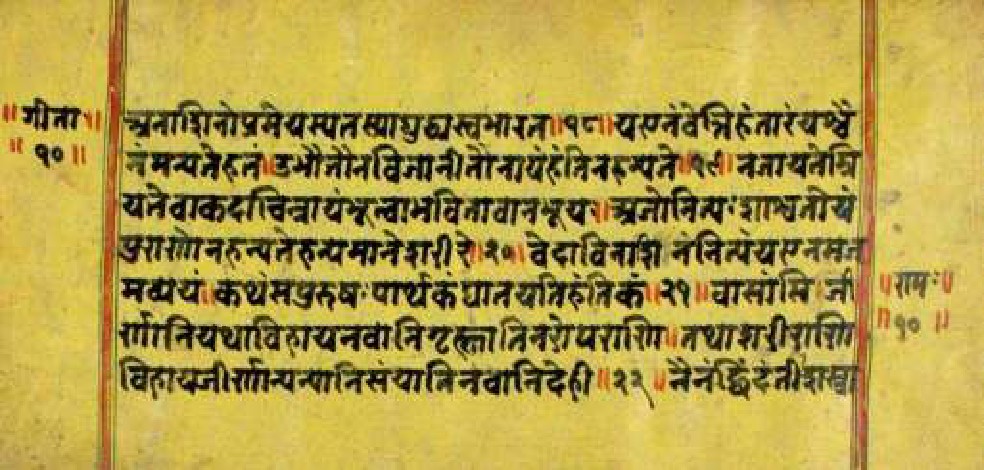 ॥गीता॥
॥१०॥
अनाशिनोप्रमेयस्यतस्माद्युद्ध्यस्वभारत॥१८॥यएनंवेत्तिहंतारंयश्चै
नंमन्यतेहतं॥उभौतौनविजानीतोनायंहंतिनहन्यते॥१९॥नजायतेम्रि
यतेवाकदाचिन्नायंभूत्वाभवितावानभूयः॥अजोनित्यःशाश्वतोयं
पुराणोनहन्यतेहन्यमानेशरीरे॥२०॥वेदाविनाशिनंनित्यंयएनमज
मव्ययं॥कथंसपुरुषःपार्थकंघातयतिहंतिकं॥२१॥वासांसिजी
र्णानियथाविहायनवानिगृह्णातिनरोपराणि॥तथाशरीराणि
विहायजीर्णान्यन्यानिसंयातिनवानिदेही॥२२॥नैनंछिंदंतीशस्त्रा
॥रामः॥
॥१०॥